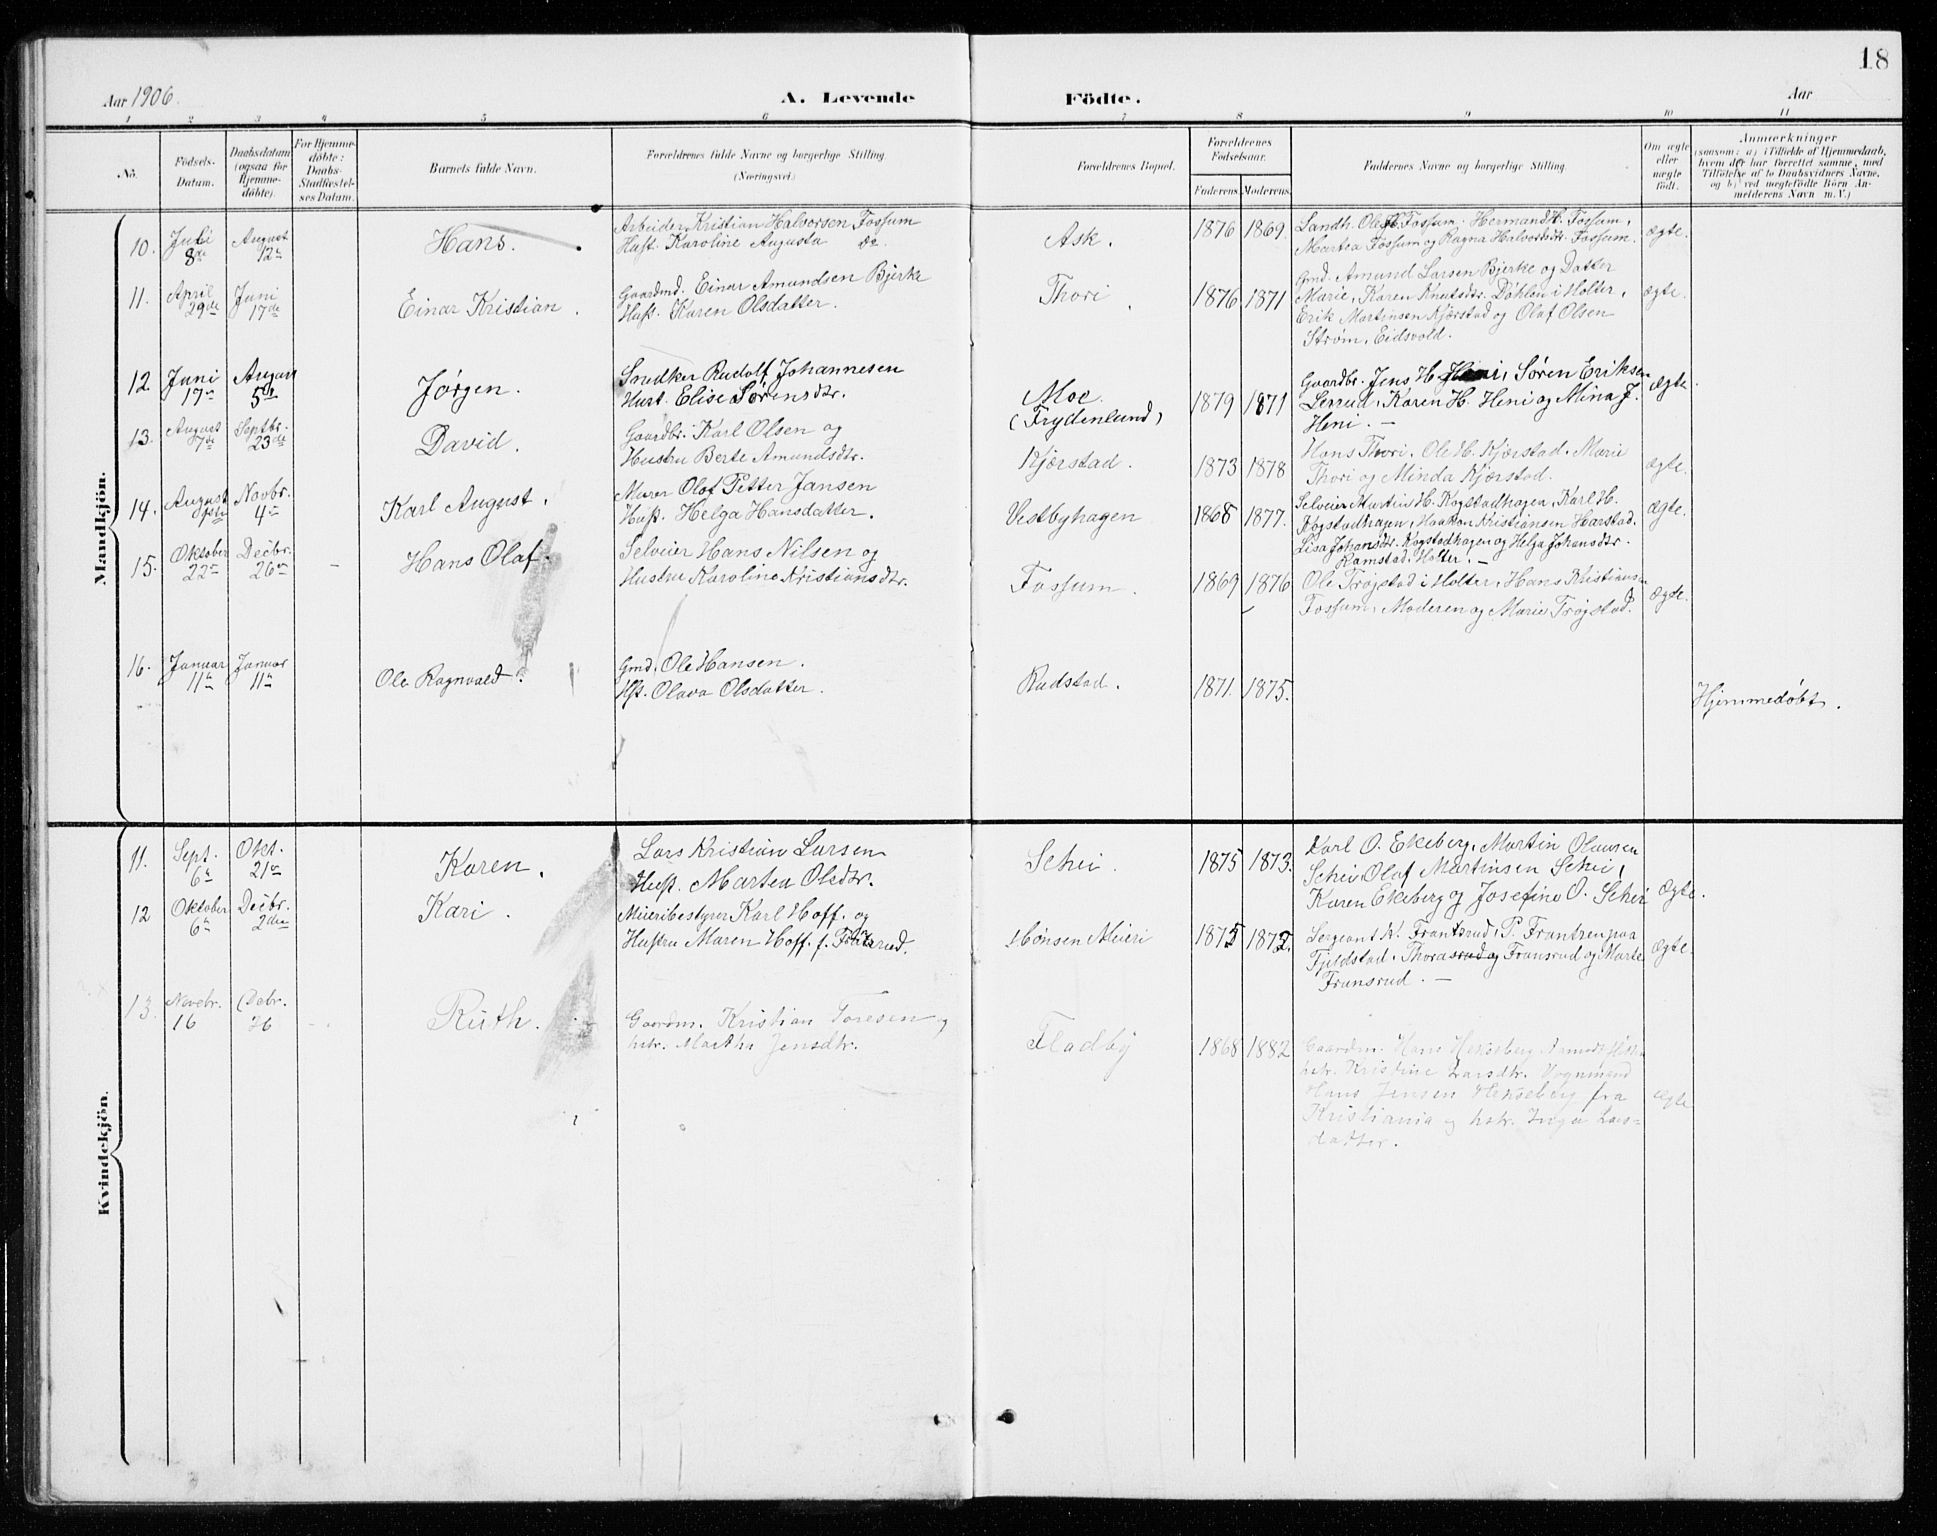 18
Aar 1906
A. Levende Födte.
Aar
1 2 3 4 5 6 7 8 9 10 11
No.
Födsels-
Datum.
Daabsdatum
(ogsaa for
Hjemme-
döbte).
For Hjemme-
döbte:
Daabs-
Stadfæstel-
ses Datum.
Barnets fulde Navn.
Forældrenes fulde Navne og borgerlige Stilling.
(Næringsvei.)
Forældrenes Bopæl.
Forældrenes
Födselsaar.
Faderens. Moderens.
Faddernes Navne og borgerlige Stilling.
Om ægte
eller
uægte
födt.
Anmærkninger
(saasom: a) i Tilfælde af Hjemmedaab,
hvem der har forrettet samme, med
Tilföielse af to Daabsvidners Navne,
og b) ved uægtefödte Börn An-
melderens Navn m. V.)
Mandkjön.
10. Juli 8de
August 12te
Hans.
Arbeider Kristian Halvorsen Fossum
Hust. Karoline Augusta
Ask.
1876 1869
Landh. Ole Fossum. Hermand H. Fossum,
Martea Fossum og Ragna Halvorsdtr. Fossum.
ægte.
11. April 29de
Juni 17de
Einar Kristian.
Gaardmd. Einar Amundsen Bjerke
Hust. Karen Olsdatter.
Thori
1876 1871
Gmd. Amund Larsen Bjerke og Datter
Marie, Karen Knutsdtr. Döhlen i Holter,
Erik Martinsen Kjærstad og Olaf Olsen
Ström, Eidsvold.
ægte.
12 Juni 17de
August 5te
Jørgen.
Snedker Rudolf Johannesen
Hust. Elise Sörensdtr.
Moe.
(Frydenlund)
1879 1871
Gaardbr. Jens H. Heni, Sören Eriksen
Lerrud, Karen H. Heni og Mina J.
Heni. —
ægte
13. August 7de
Septbr. 23de
David.
Gaardbr. Karl Olsen og
Hustru Berte Amundsdtr.
Kjærstad.
1873 1878
Hans Thori. Ole H. Kjærstad. Marie
Thori og Minda Kjærstad.
ægte.
14. August
Novbr. 4de
Karl August.
Murer Olof Petter Jansen
Hust. Helga Hansdatter.
Vestbyhagen
1868 1877.
Selveier Martin H. Kogstadhagen, Karl H.
Kogstadhagen, Haakon Kristiansen Harstad.
Lisa Johansdtr. Kogstadhagen og Helga Johansdtr.
Ramstad. Holter. —
ægte.
15. Oktober 22de
Decbr. 26de
Hans Olaf.
Selveier Hans Nilsen og
Hustru Karoline Kristiansdtr.
Fossum.
1869 1876
Ole Trøgstad i Holter, Hans Kristiansen
Fossum, Moderen og Marie Trøgstad.
ægte.
16. Januar 11te
Januar 11te
Ole Ragnvald.
Gmd. Ole Hansen.
Hst. Olava Olsdatter.
Rudstad.
1871. 1875.
Hjemmedøbt.
Kvindekjön.
11. Sept. 6te
Okt. 21de
Karen.
Lars Kristian Larsen
Hust. Martea Olsdtr.
Schei.
1875 1873.
Karl O. Ekeberg, Martin Olausen
Schei, Olaf Martinsen Schei,
Karen Ekeberg og Josefine O. Schei
ægte.
12 Oktober 6te
Decbr. 2den
Kari.
Meieribestyrer Karl Hoff. og
Hustru Maren Hoff. f.
Hønsen Meieri
1875 1872.
Sergeant K. Frantsrud, P. Frantzen paa
Fjeldstad, Thora og Fransrud og Marte
Fransrud. —
ægte.
13. Novebr. 16
Debr. 26
Ruth.
Gaardm. Kristian Toresen og
hstr. Marthe Jensdtr.
Fladby
1868 1882
Gaardm. Hans Hekseberg
hstr. Kristine Larsdtr. Vognmand
Hans Jensen Hekseberg fra
Kristiania og hstr. Inga Lars-
datter.
ægte